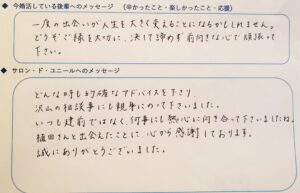 今婚活している後輩へのメッセージ （辛かったこと・楽しかったこと・応援）
一度の出会いが人生を大きく変えることになるかもしれません。
どうぞご縁を大切に、決して諦めず前向きな心で頑張って
下さい。
サロン・ド・ユニールへのメッセージ
どんな時も的確なアドバイスを下さり、
沢山の相談事にも親身にのって下さいました。
いつも建前ではなく、何事にも熱心に向き合って下さいましたね。
植田さんと出会えたことに、心から感謝しております。
誠にありがとうございました。